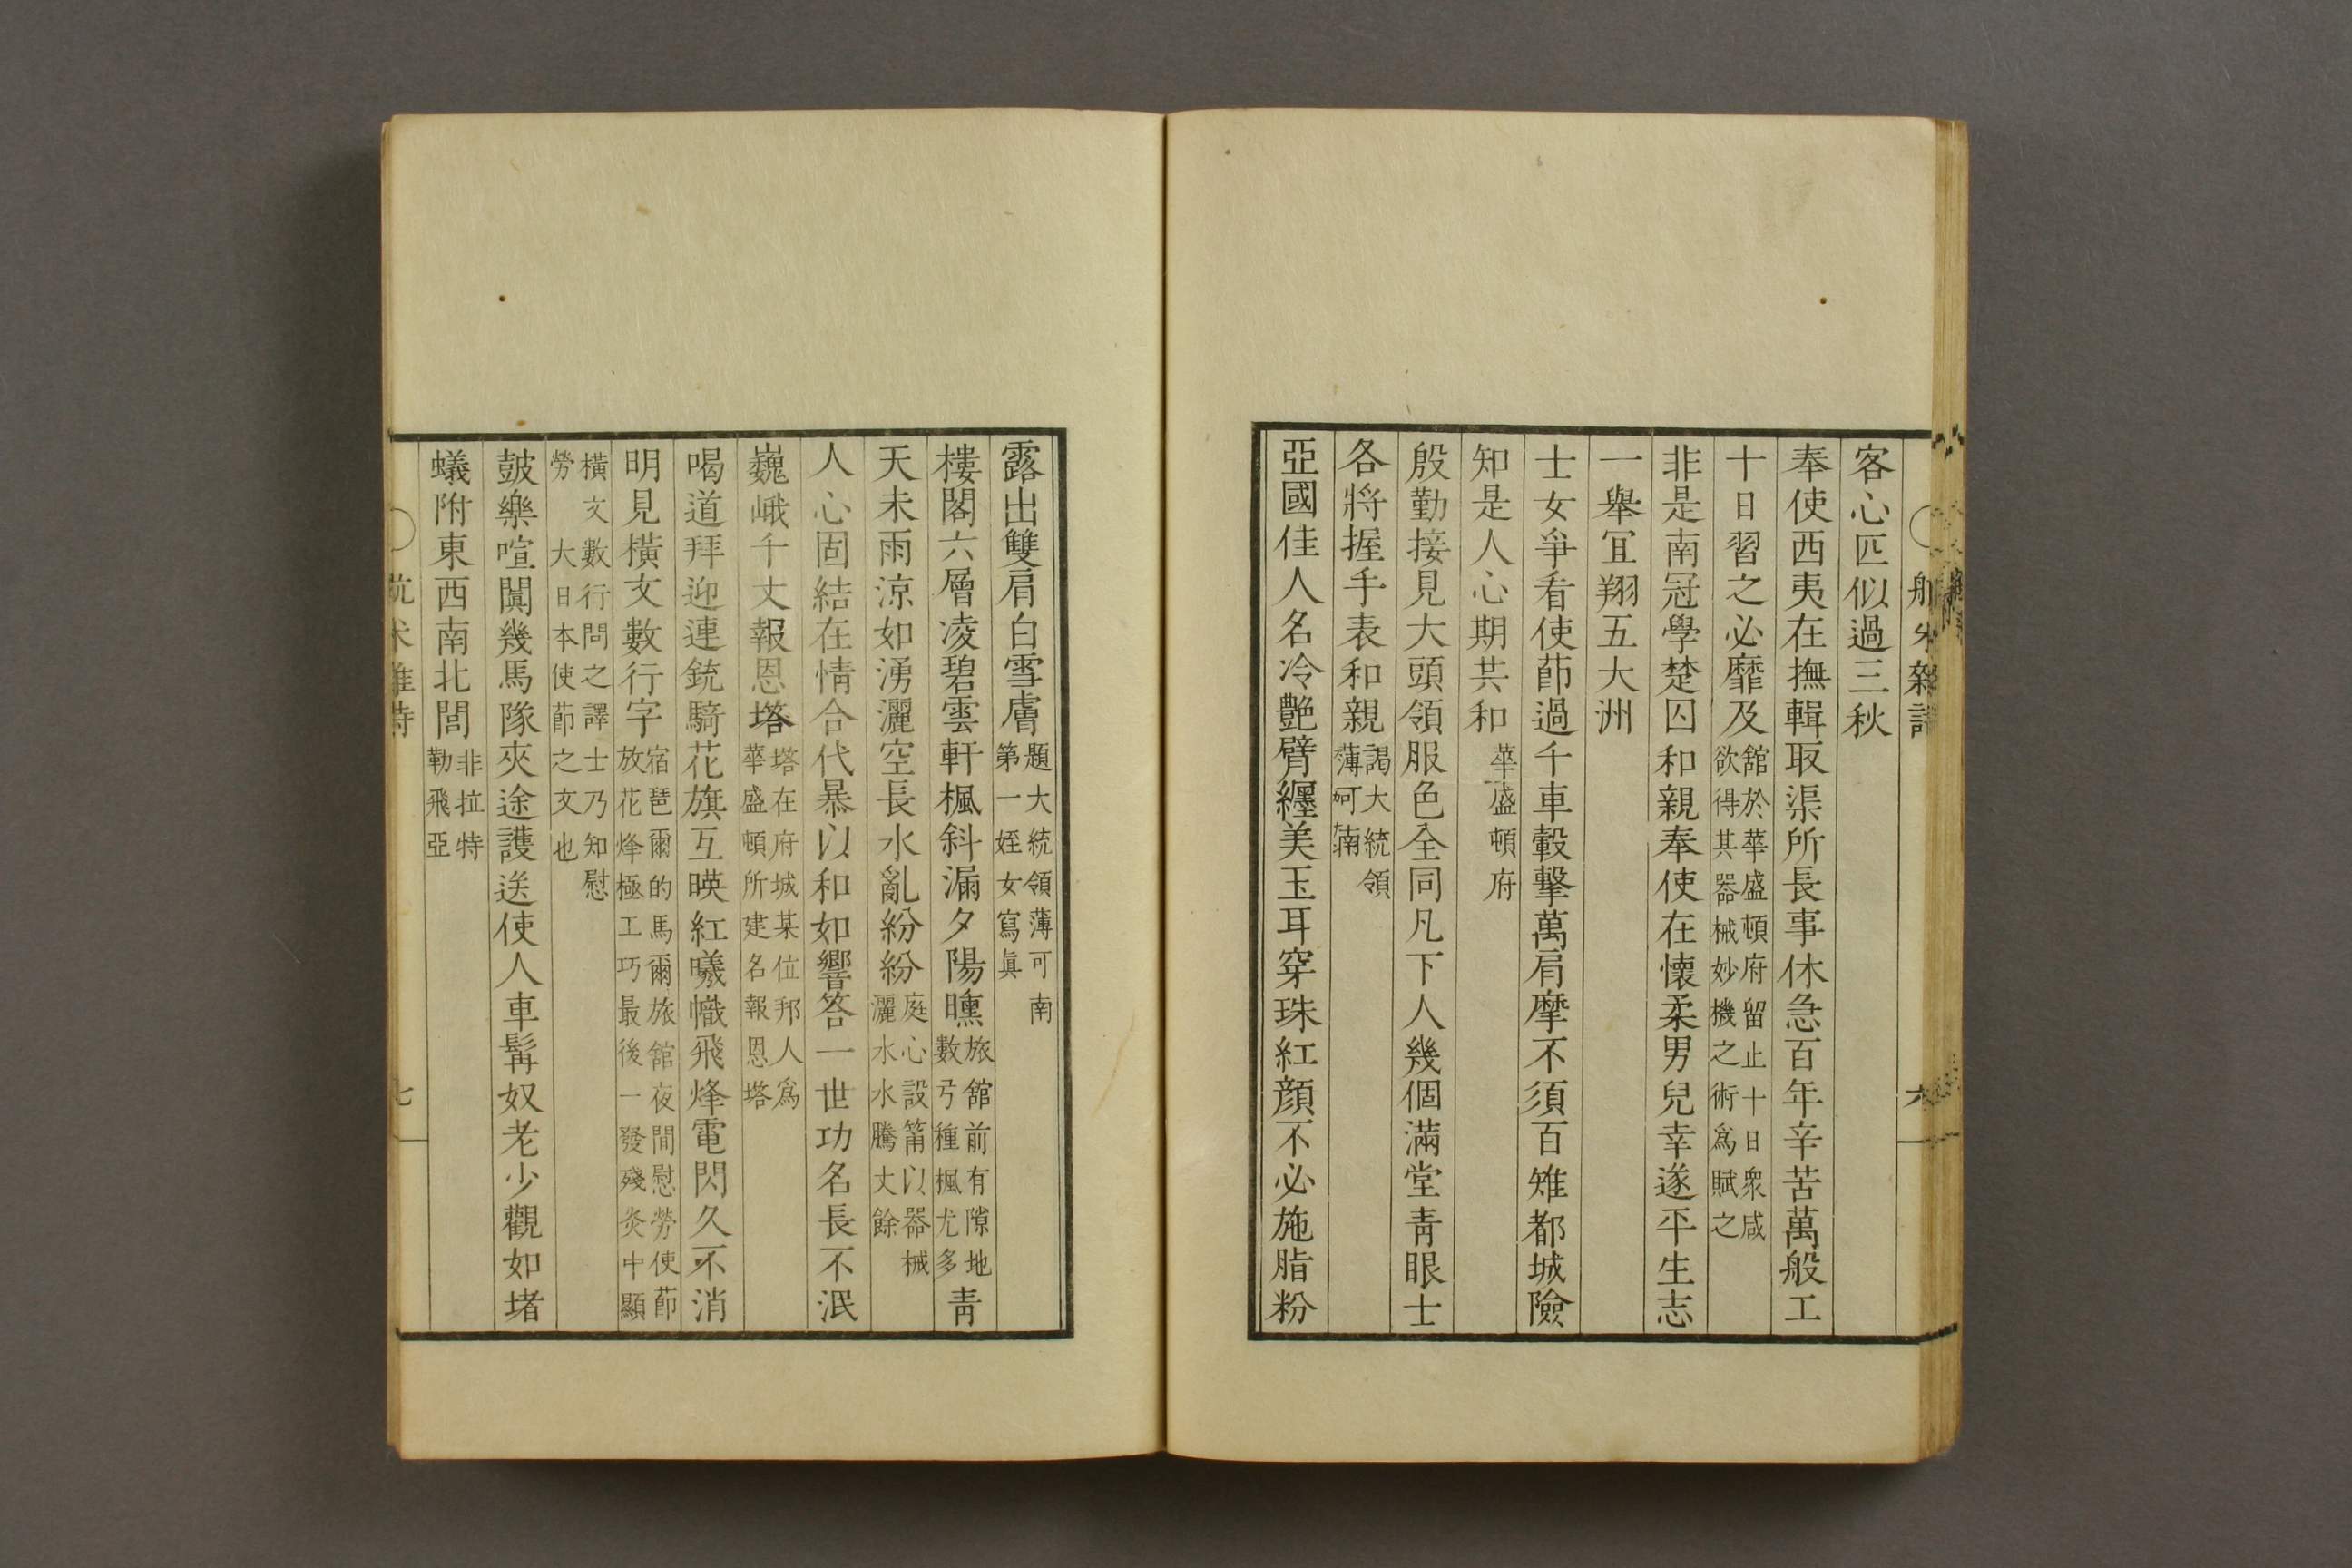 客心匹似過三秋
奉使西夷在撫輯取渠所長事休急百年辛苦萬般工
十日習之必靡及舘於華盛頓府留止十日衆咸
欲得其器械妙機之術爲賦之
非是南冠學楚囚和親奉使在懷柔男兒幸遂平生志
一舉冝翔五大洲
士女爭看使莭過千車轂擊萬肩摩不須百雉都城險
知是人心期共和華盛頓府
殷勤接見大頭領服色全同凡下人幾個滿堂靑眼士
各將握手表和親謁大統領
薄呵南
亞國佳人名冷艷臂纏美玉耳穿珠紅顔不必施脂粉
六
露出雙肩白雪膚題大統領薄可南
第一姪女寫眞
樓閣六層凌碧雲軒楓斜漏夕陽曛旅舘前有隙地
數弓種楓尤多靑
天未雨涼如湧灑空長水亂紛紛庭心設筩以器械
灑水水騰丈餘
人心固結在情合代暴以和如響答一世功名長不泯
巍峨千丈報恩塔塔在府城某位邦人爲
華盛頓所建名報恩塔
喝道拜迎連銃騎花旗互暎紅曦幟飛烽電閃久不消
明見橫文數行字宿琶爾的馬爾旅舘夜間慰勞使莭
放花烽極工巧最後一發殘炎中顯
橫文數行問之譯士乃知慰
勞大日本使莭之文也
皷樂喧闐幾馬隊夾途護送使人車髯奴老少觀如堵
蟻附東西南北閭非拉特
勒飛亞
七